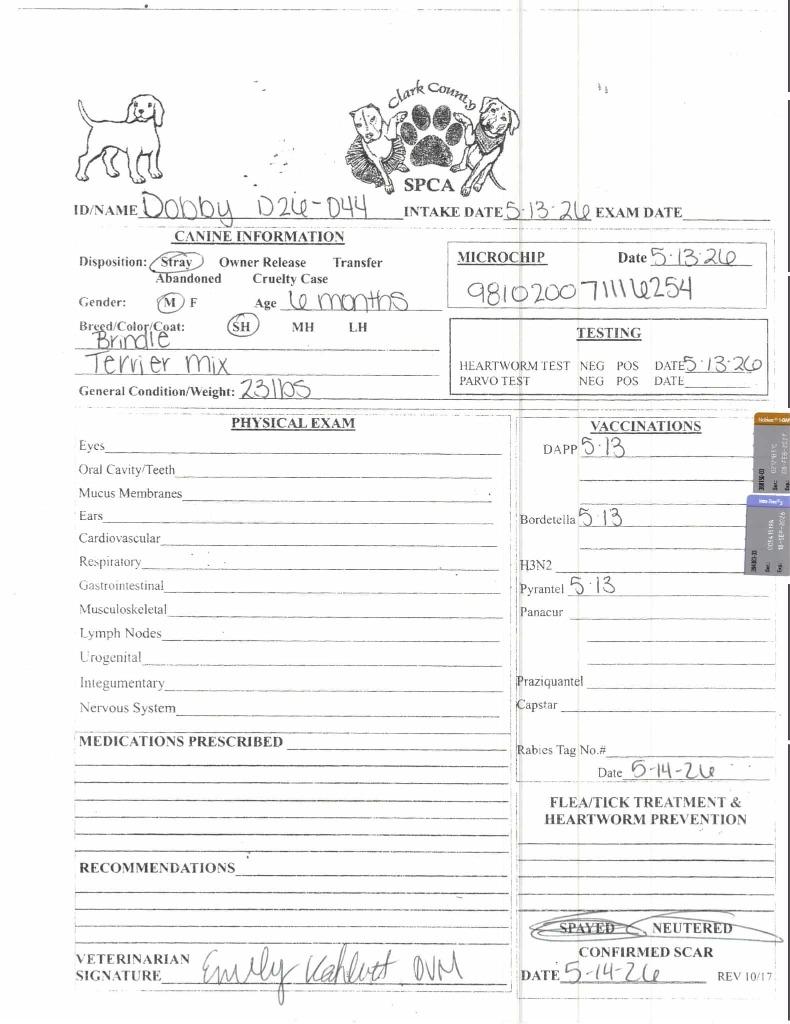 Clark County
SPCA
ID/NAME Dobby D26-044 INTAKE DATE 5-13-26 EXAM DATE
CANINE INFORMATION
Disposition: Stray Owner Release Transfer
Abandoned Cruelty Case
Gender: M F Age 6 months
Breed/Color/Coat: SH MH LH
Brindle
Terrier mix
General Condition/Weight: 23lbs
MICROCHIP Date 5-13-26
TESTING
HEARTWORM TEST NEG POS DATE 5-13-26
PARVO TEST NEG POS DATE
PHYSICAL EXAM
Eyes
Oral Cavity/Teeth
Mucus Membranes
Ears
Cardiovascular
Respiratory
Gastrointestinal
Musculoskeletal
Lymph Nodes
Urogenital
Integumentary
Nervous System
MEDICATIONS PRESCRIBED
RECOMMENDATIONS
VETERINARIAN
SIGNATURE Emily DVM
VACCINATIONS
DAPP 5-13
Bordetella 5-13
H3N2
Pyrantel 5-13
Panacur
Praziquantel
Capstar
Rabies Tag No.#
Date 5-14-26
FLEA/TICK TREATMENT &
HEARTWORM PREVENTION
SPAYED NEUTERED
CONFIRMED SCAR
DATE 5-14-26 REV 10/17